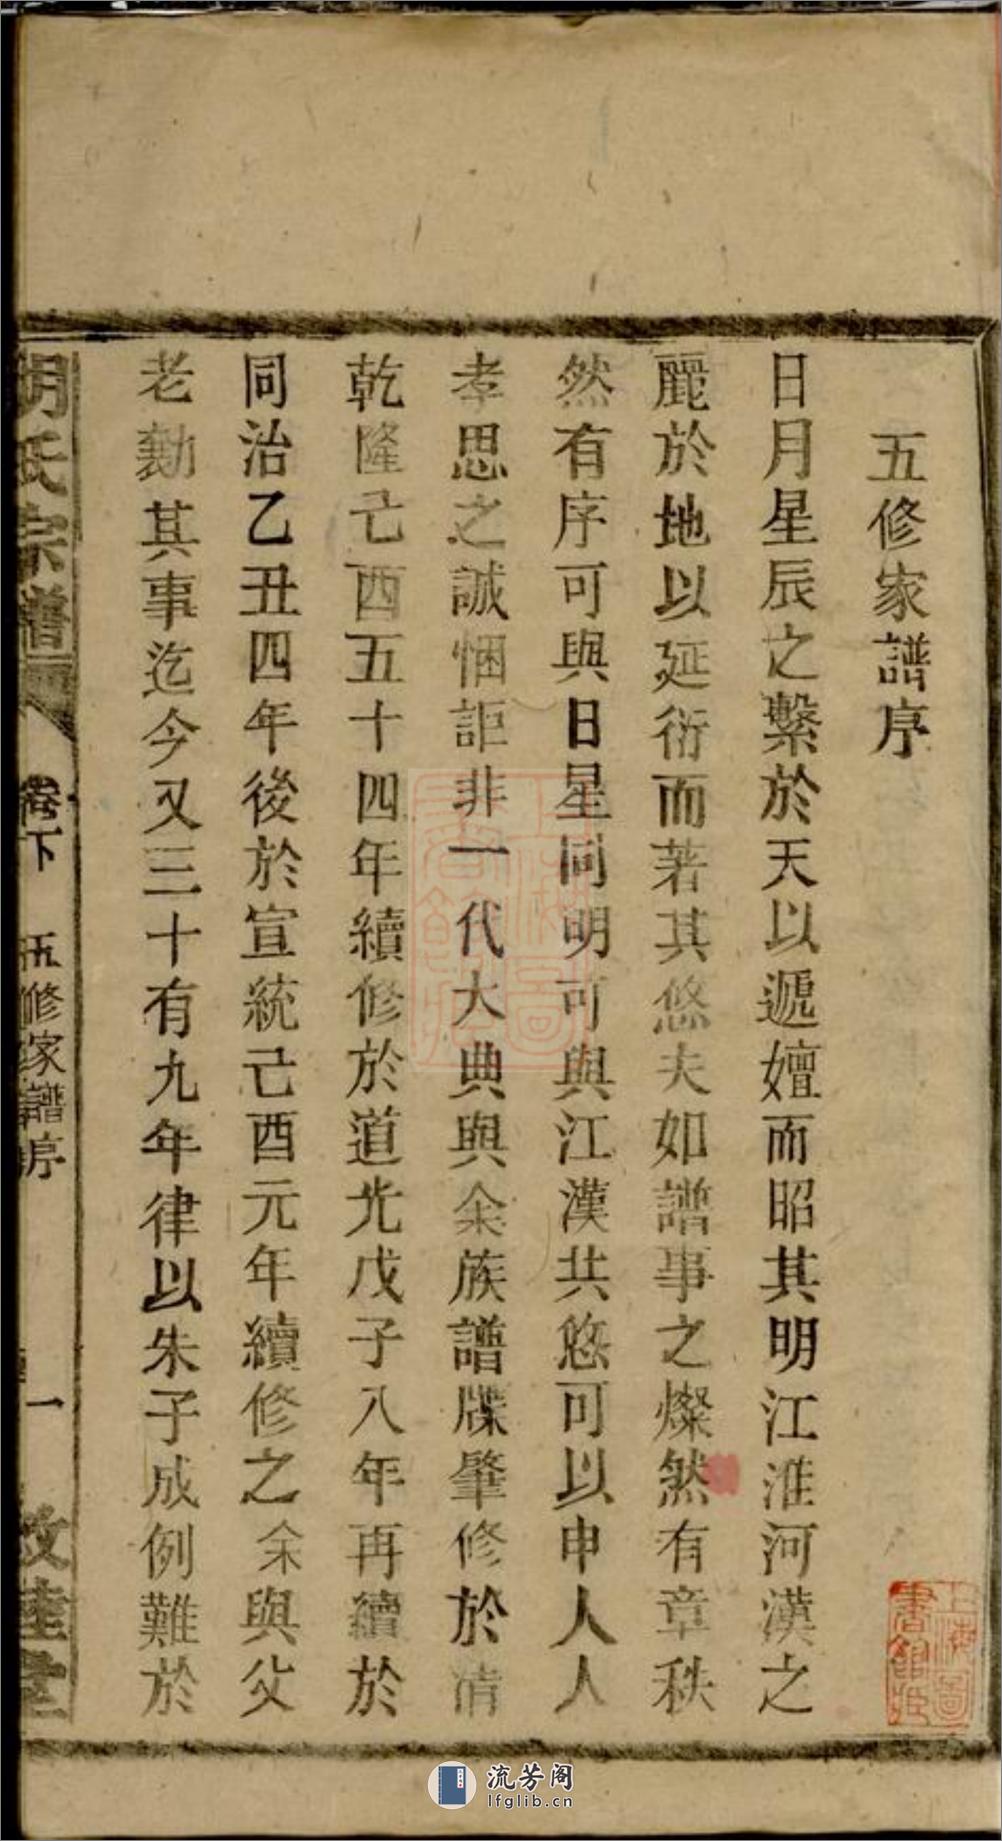 五修家譜序
日月星辰之繫於天以遞嬗而昭其明江淮河漢之
麗於地以延衍而著其悠夫如譜事之燦然有章秩
然有序可與日星同明可與江漢共悠可以申人人
孝思之誠悃詎非一代大典與余族譜牒肇修於清
乾隆己酉五十四年續修於道光戊子八年再續於
同治乙丑四年後於宣統己酉元年續修之余與父
老勷其事迄今又三十有九年律以朱子成例難於
胡氏宗譜
卷下
五修家譜序
一
敦睦堂
上海圖書館藏
流芳阁
lfglib.cn